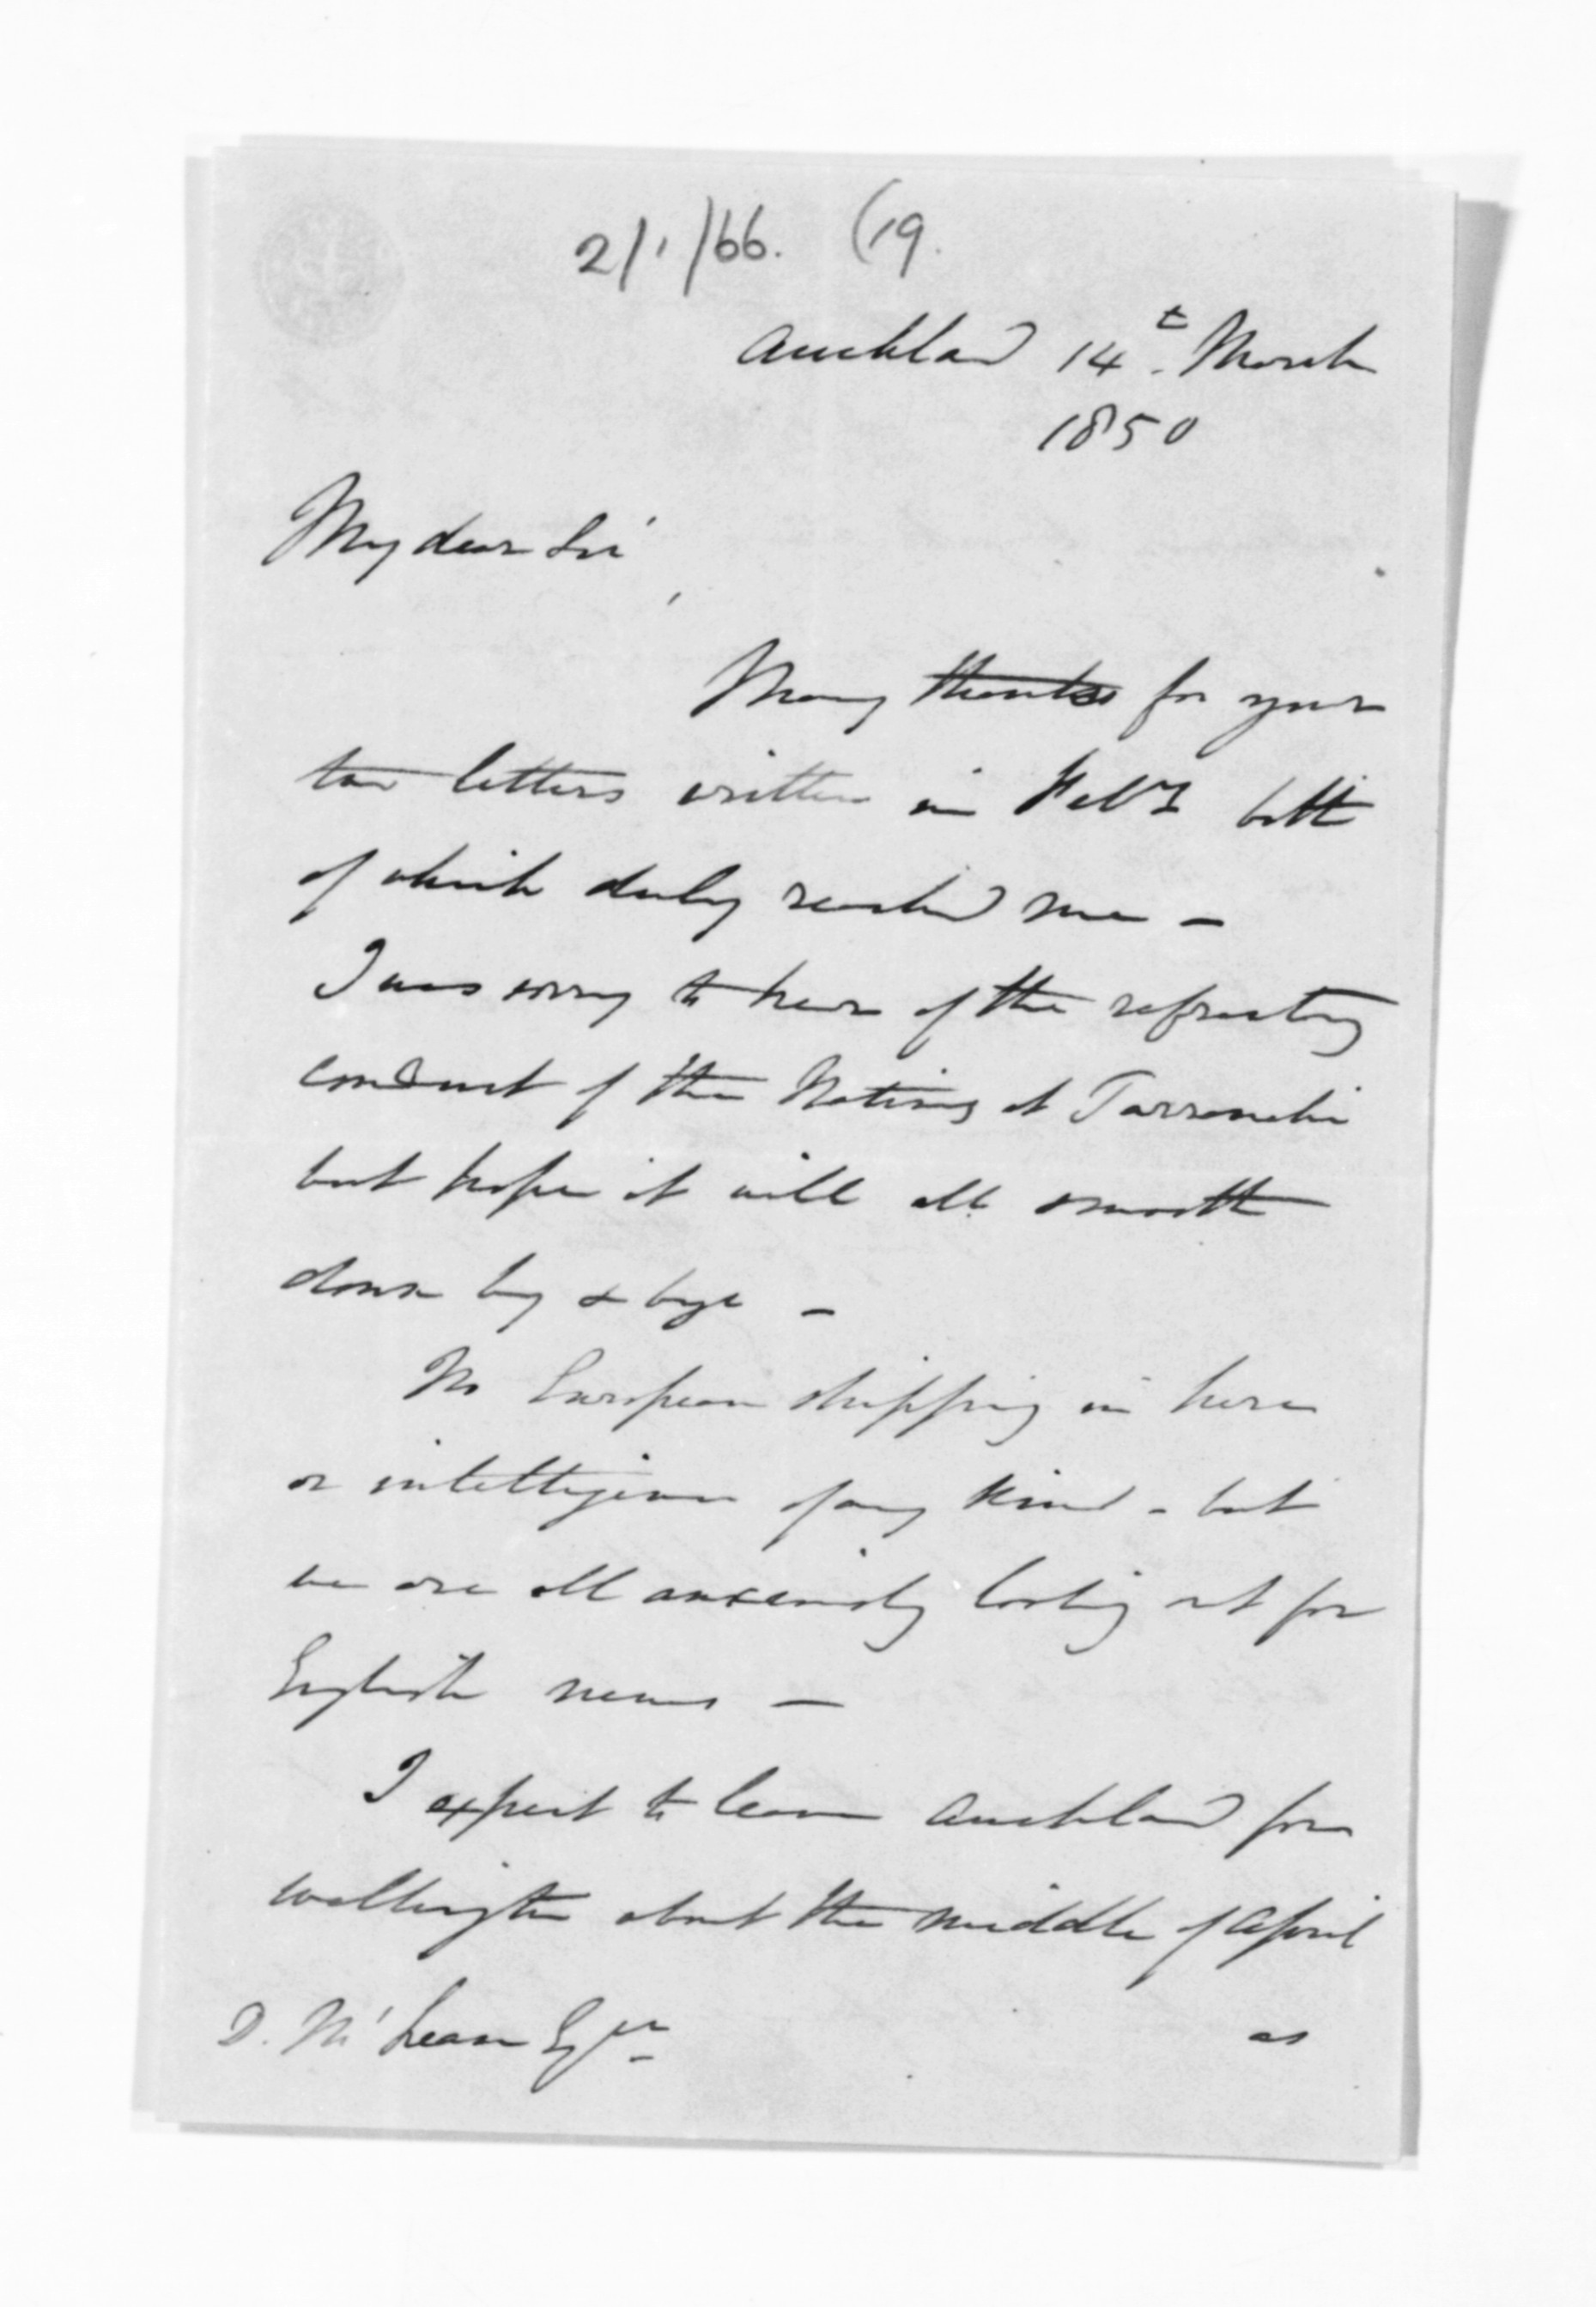 2/1/66. (19.
Auckland 14t. March
1850
My dear Sir,
Many thanks for your
two letters written in Feby both
of which duly reached me -
I was sorry to hear of the refractory
conduct of the Natives at Tarranaki
but hope it will all smooth
down by & bye -
No European shipping in here
or intelligence of any kind - but
we are all anxiously looking out for
English news -
I expect to leave Auckland for
Wellington about the middle of April
D. McLean Esqre
as